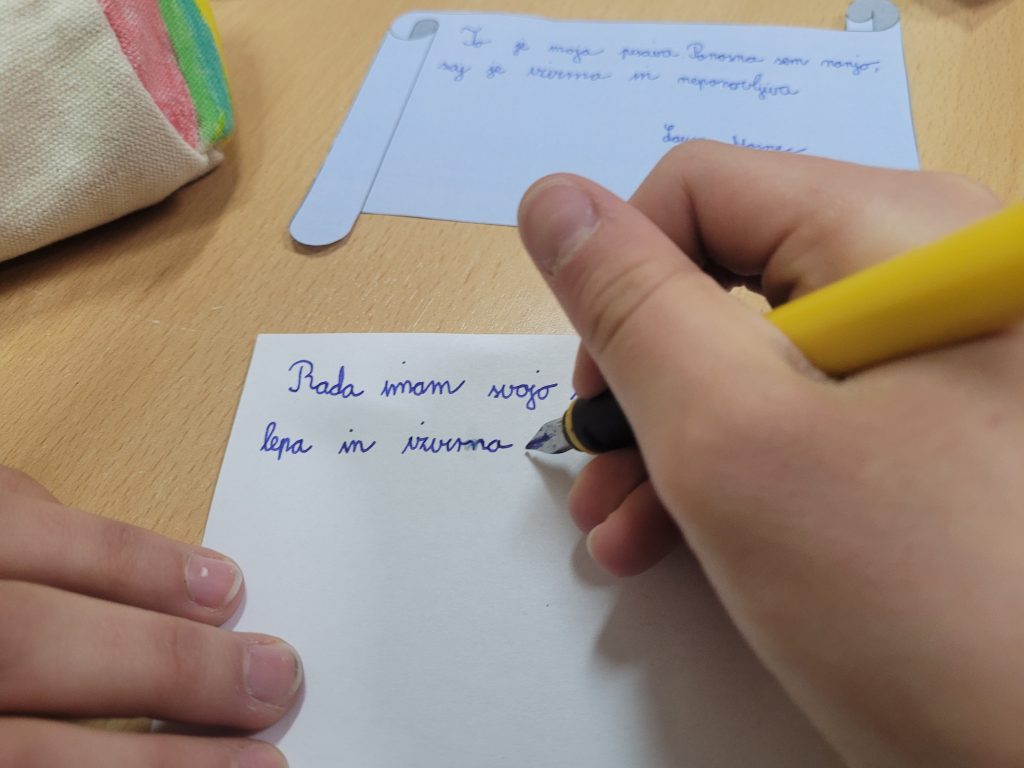 To je moja pisava Ponosna sem nanjo,
saj je izvirna in neponovljiva
Rada imam svojo
lepa in izvirna